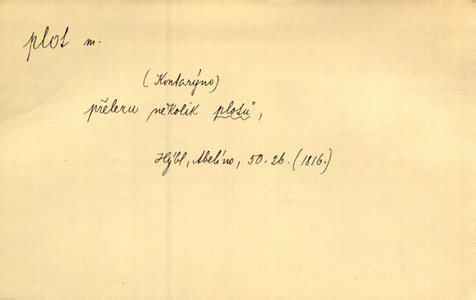 plot m.
(Kontarýno)
přelezu několik plotů,
Hýbl, Abelíno, 50.26. (1816.)